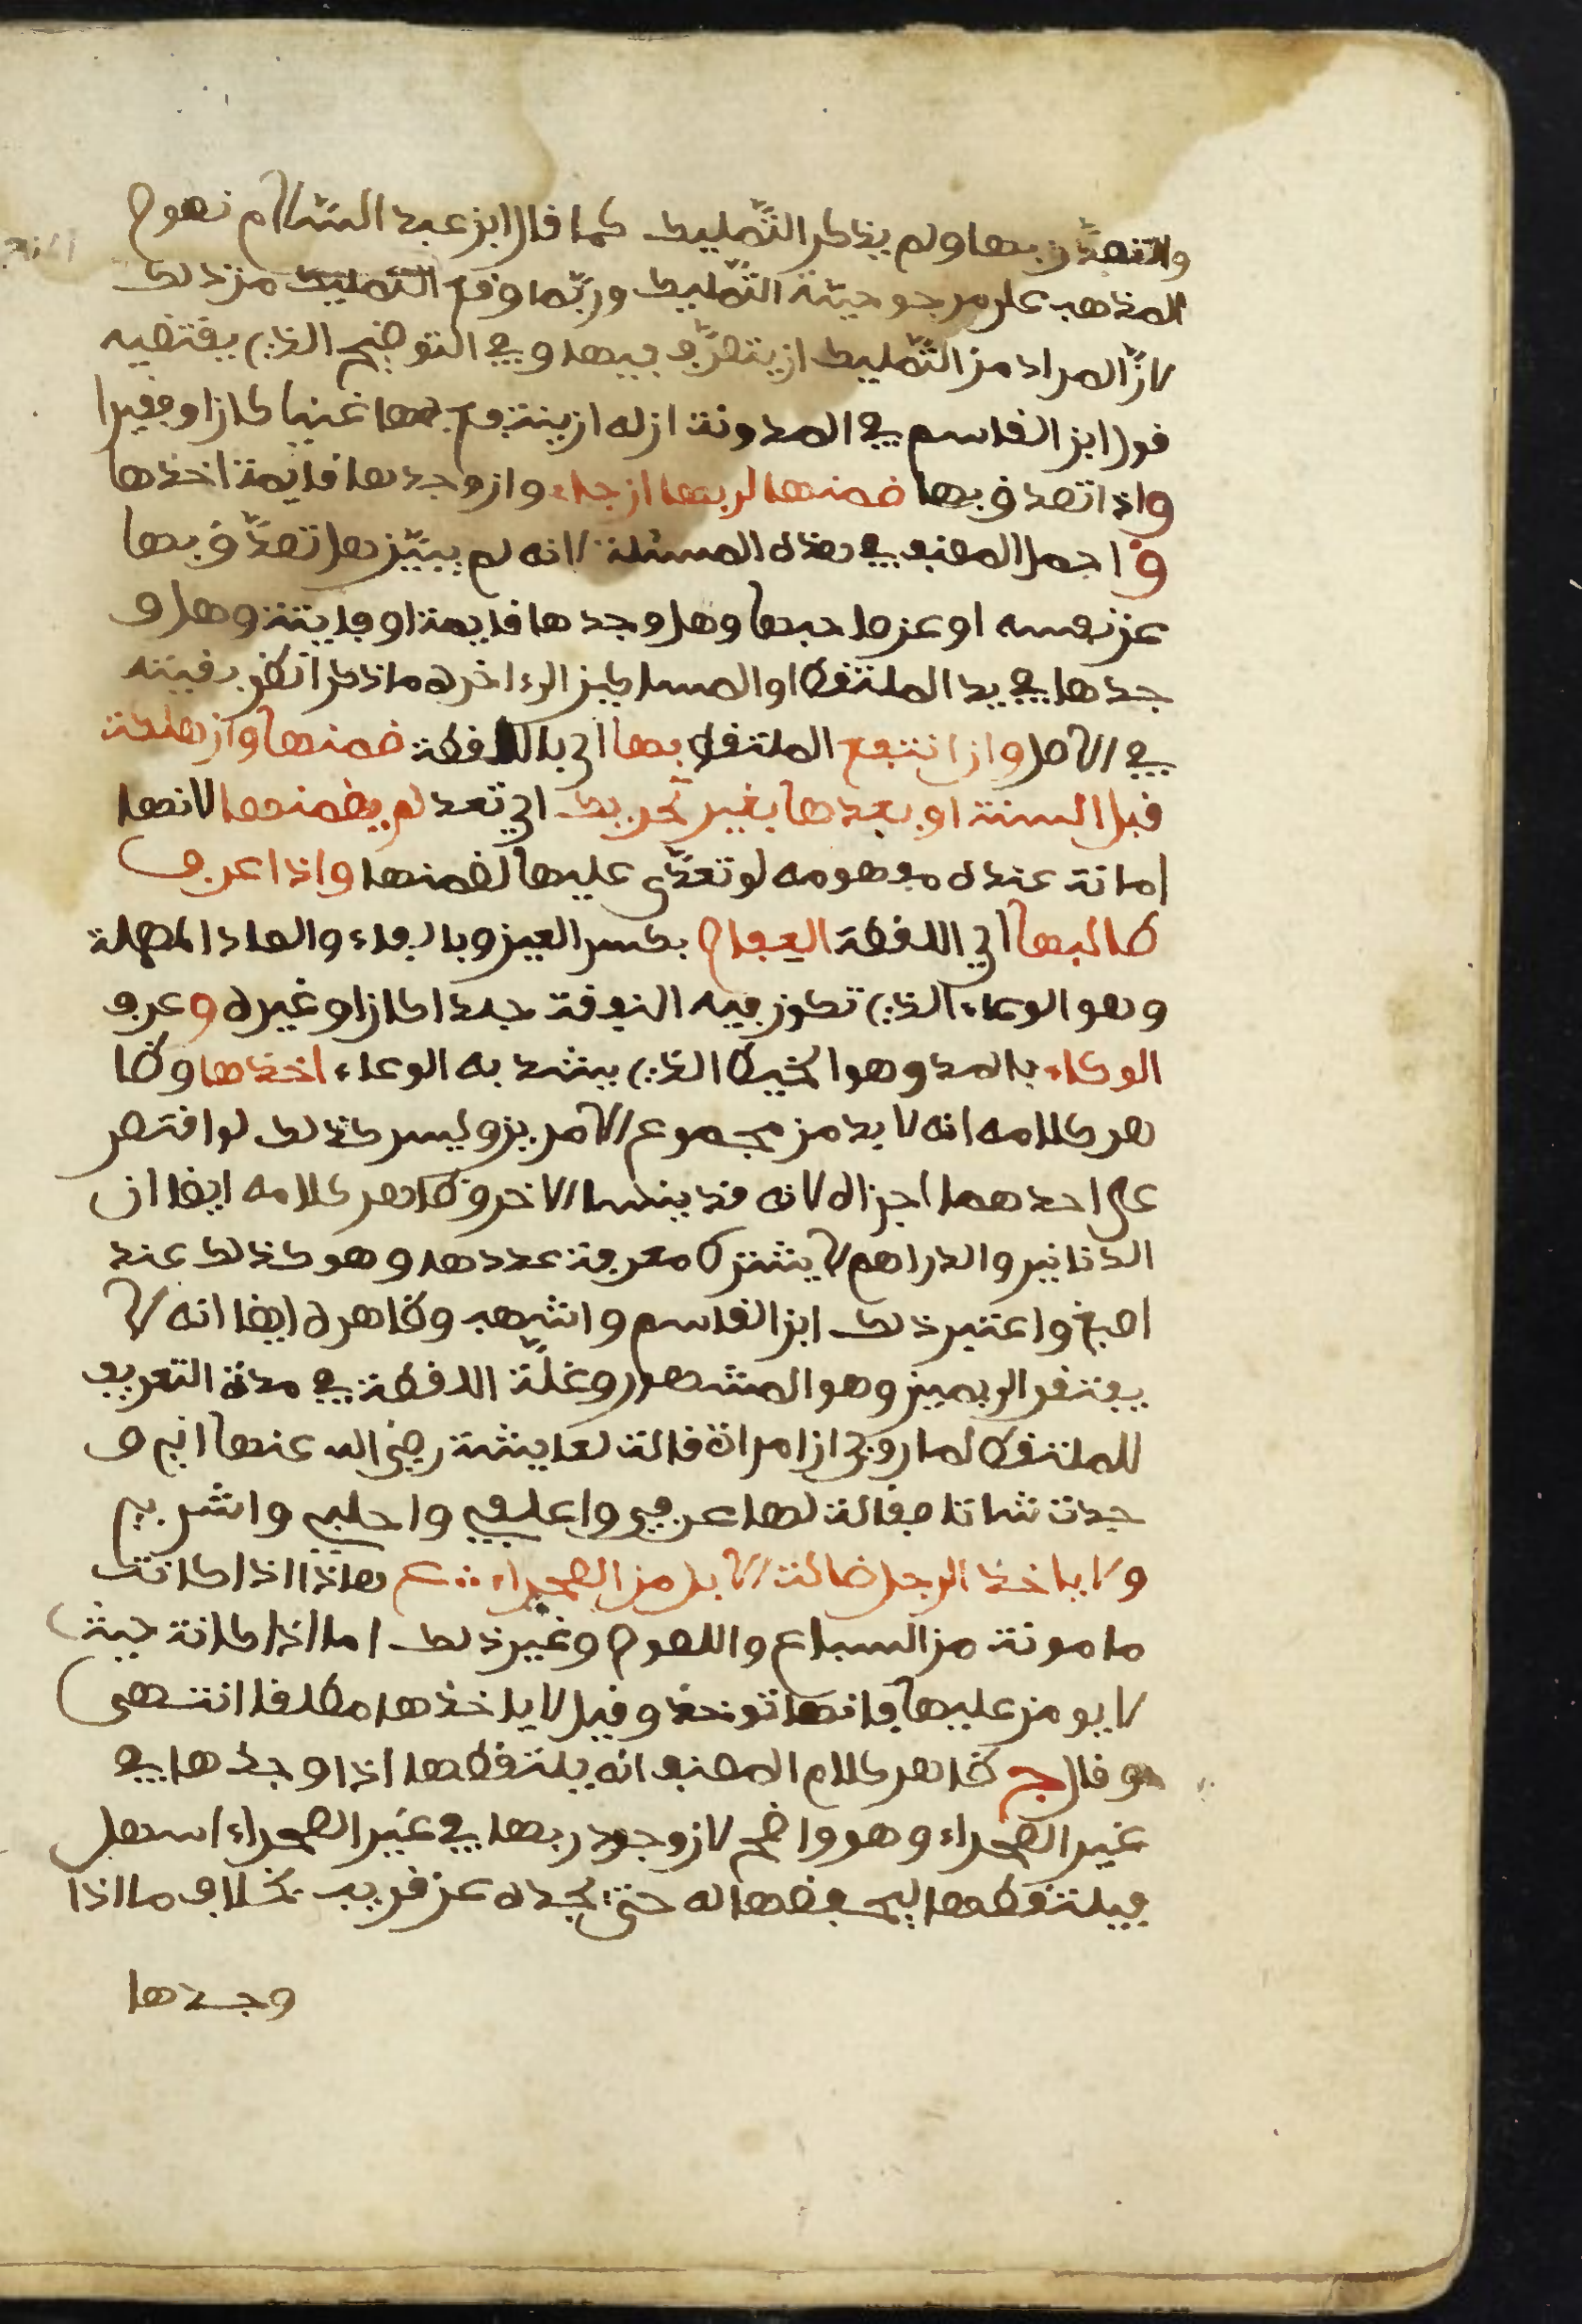 والتصدق بها ولم يذكر التمليك كما قال ابن عبد السلام نصوص
المذهب على مرجوحيته التمليك وربما وقع التمليك من ذلك
لان المراد من التمليك ان يتصرف فيها وفي التوضيح الذي يقتضيه
قول ابن القاسم في المدونة ان له ان ينتفع بها غنيا كان او فقيرا
واذا تصدق بها ضمنها لربها ان جاء وان وجدها قائمة اخذها
واجمل المصنف في هذه المسئلة لانه لم يبين هل تصدق بها
عن نفسه او عن صاحبها وهل وجدها قائمة او فايتة وهل و
جدها في يد الملتقط او المساكين الى اخره ما ذكر انظر بقيته
في الاصل وان انتفع الملتقط بها اي باللقطة ضمنها وان هلكت
قبل السنة او بعدها بغير تحريك اي تعد لم يضمنها لانها
امانة عنده مفهومه لو تعدى عليها لضمنها واذا عرف
طالبها اي اللقطة العفاص بكسر العين وبالفاء والصاد المهملة
وهو الوعاء الذي تكون فيه النفقة جلدا كان او غيره وعرف
الوكاء بالمد وهو الخيط الذي يشد به الوعاء اخذها وظا
هر كلامه انه لا بد من مجموع الامرين وليس كذلك لو اقتصر
على احدهما اجزاه لانه قد ينسا الاخر وظاهر كلامه ايضا ان
الدنانير والدراهم لا يشترط معرفة عددها وهو كذلك عند
اصبغ واعتبر ذلك ابن القاسم واشهب وظاهره ايضا انه لا
يفتقر الى يمين وهو المشهور وغلة اللقطة في مدة التعريف
للملتقط لما روي ان امراة قالت لعايشة رضي الله عنها اني و
جدت شاتا فقالت لها عرفي واعلفي واحلبي واشربي
ولا ياخذ الرجل ضالت الابل من الصحراء ع هاذا اذا كانت
مامونة من السباع واللصوص وغير ذلك اما اذا كانت حيث
لا يومن عليها فانها توخذ وقيل لا ياخذها مطلقا انتهى
وقال ج ظاهر كلام المصنف انه يلتقطها اذا وجدها في
غير الصحراء وهو واضح لان وجود ربها في غير الصحراء اسهل
فيلتقطها ليحفظها له حتى يجده عن قريب بخلاف ما اذا
وجدها